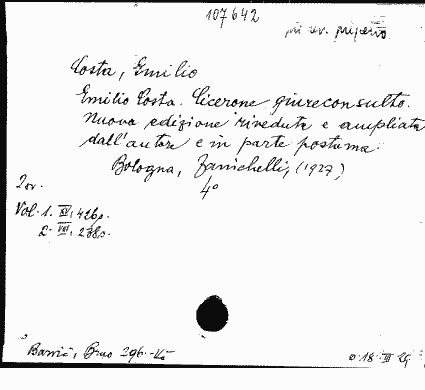 107642
Costa, Emilio
Emilio Costa. Cicerone giureconsulto.
Nuova edizione riveduta e ampliata
dall'autore e in parte postuma.
Bologna, Zanichelli, (1927)
4°
2 ov.
Vol. 1. XV, 426 p.
2. VIII, 278 p.
296.
18 III 29